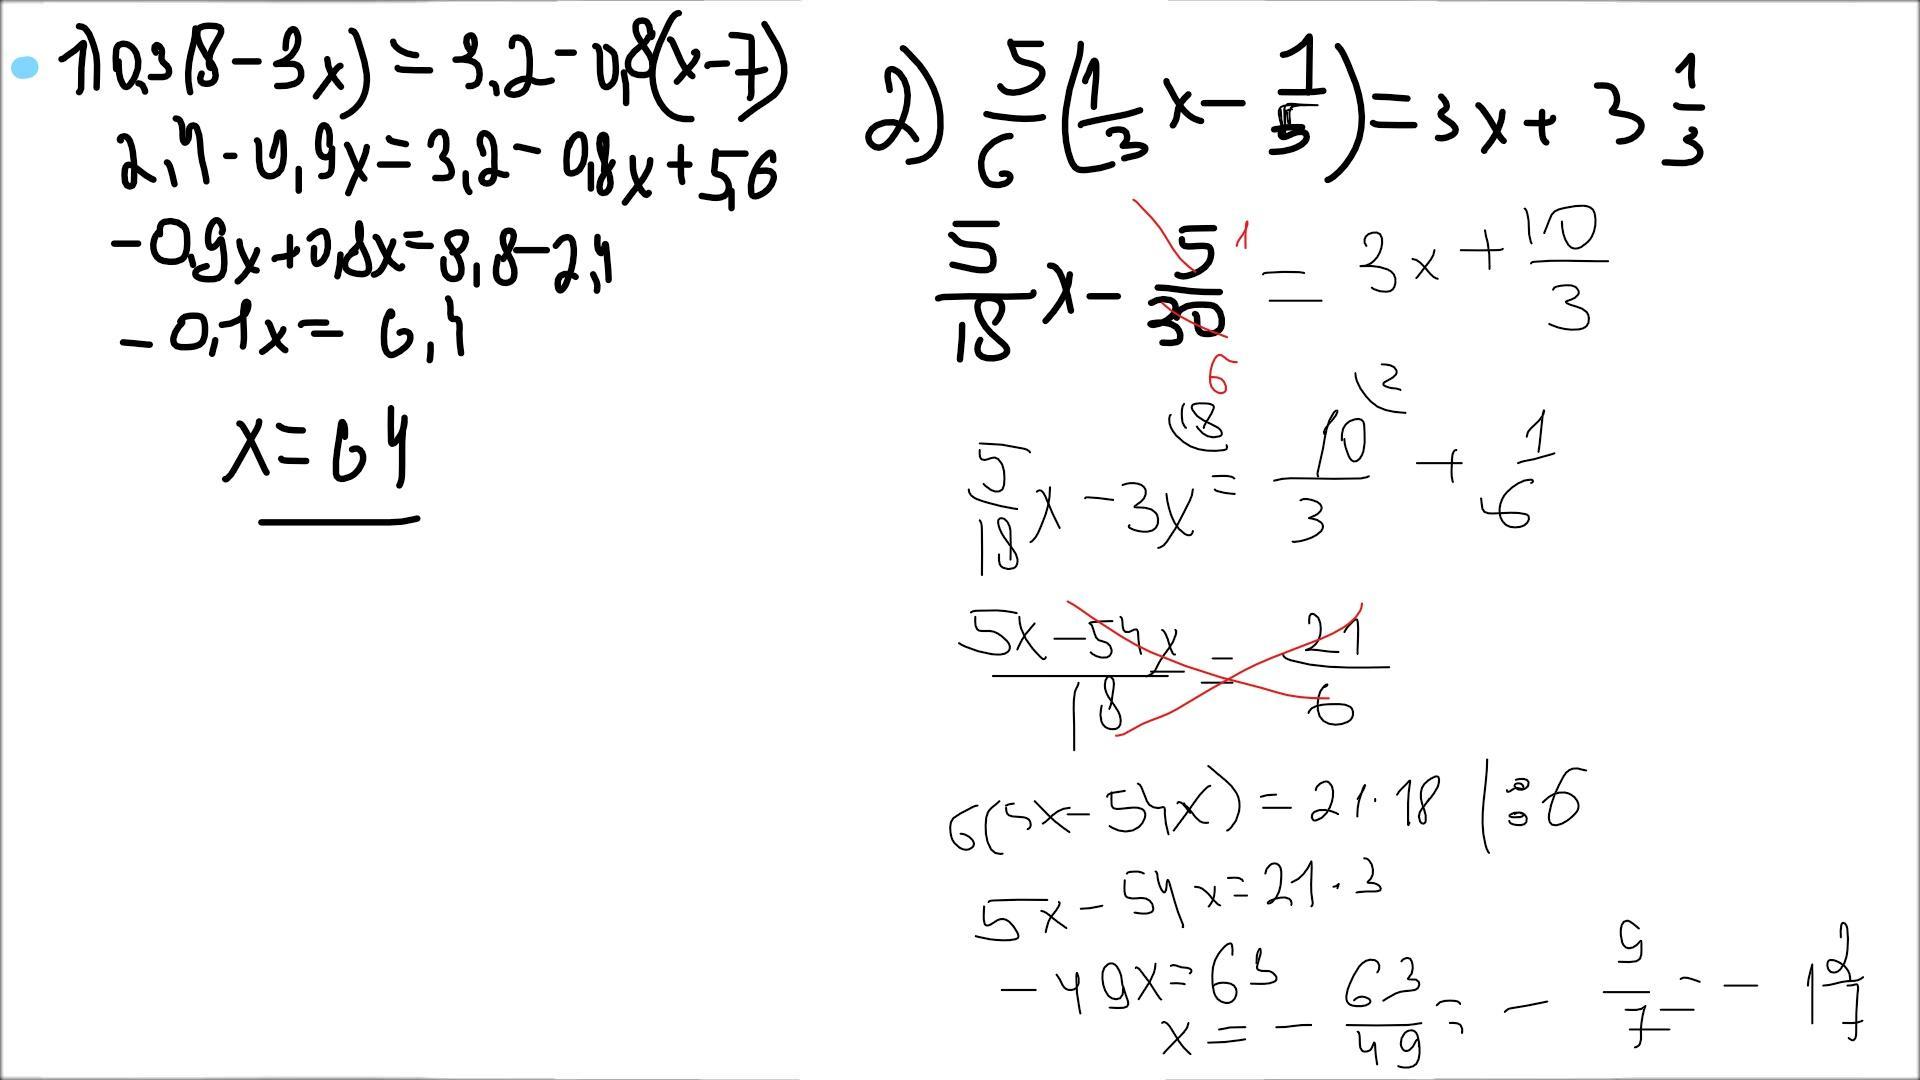 1) 0,3(8-3x) = 3,2-0,8(x-7)
2,4-0,9x=3,2-0,8x+5,6
-0,9x+0,8x=8,8-2,4
-0,1x=6,4
x=64
2) 5/6(1/3x-1/5)=3x+3 1/3
5/18x-5/30=3x+10/3
1
6
5/18x-3x=10/3+1/6
18
2
5x-54x/18=21/6
6(5x-54x)=21·18 |:6
5x-54x=21·3
-49x=63
x=-63/49=-9/7=-1 2/7